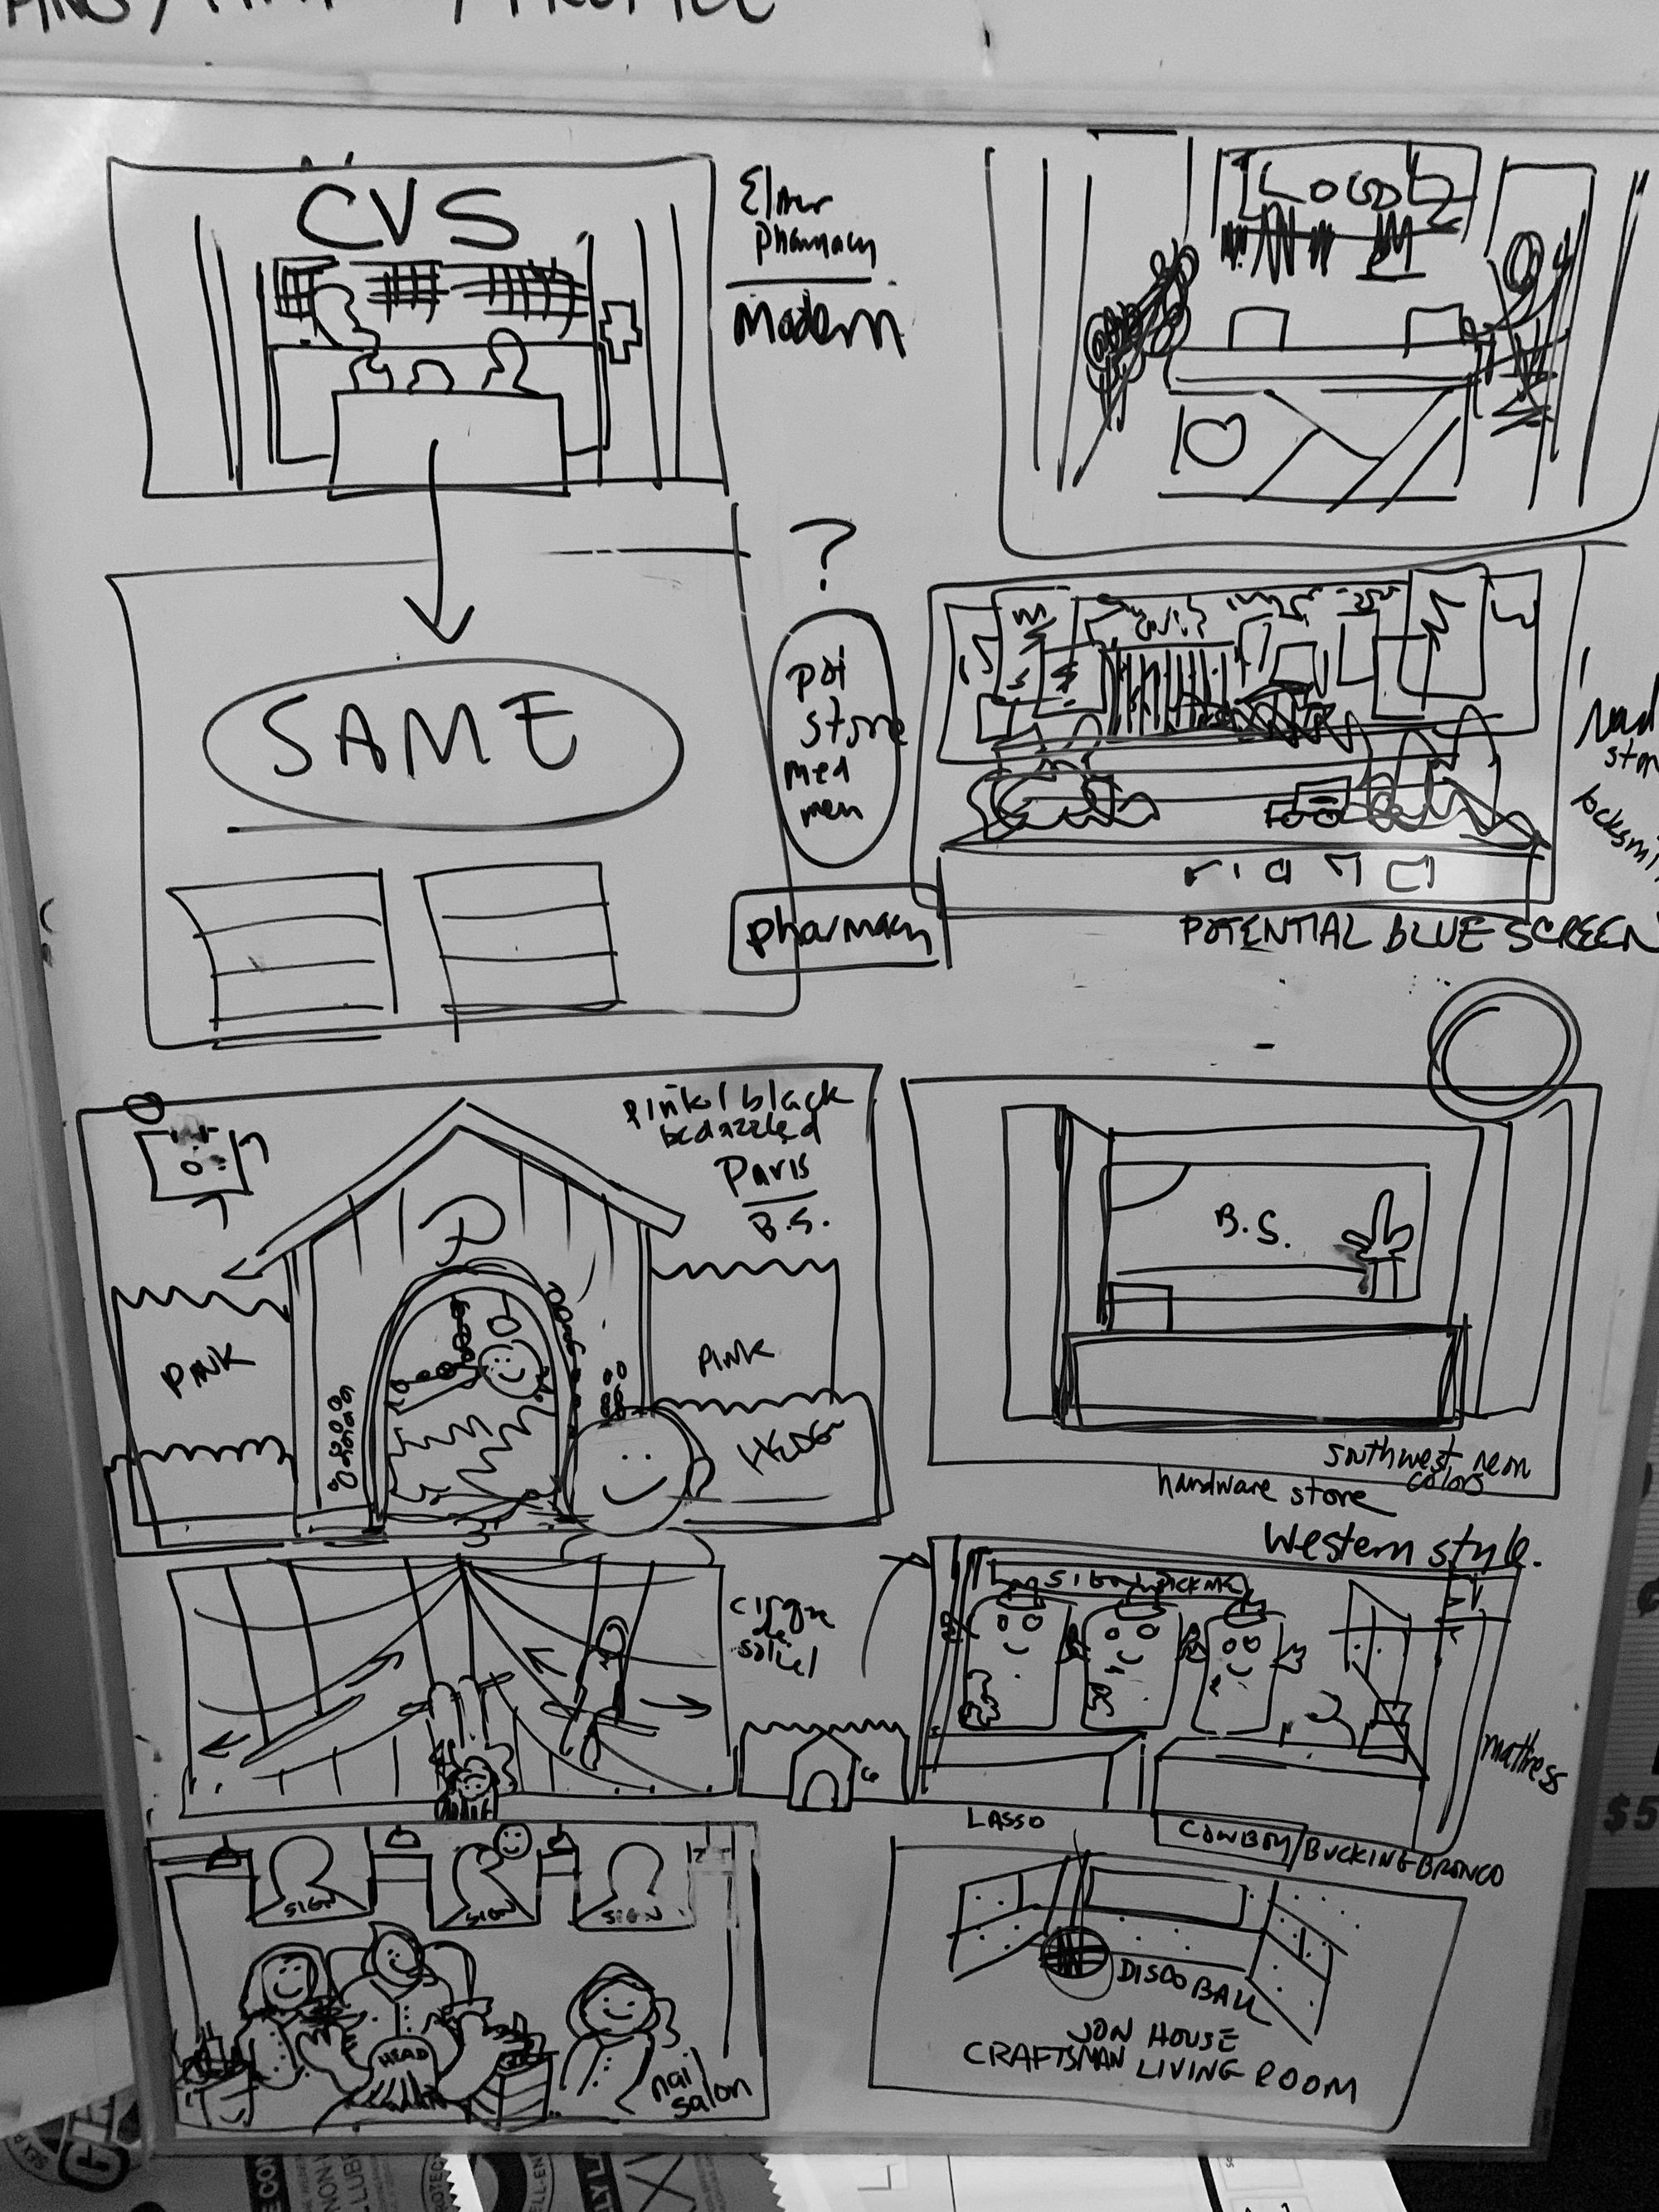 CVS
Elmer
pharmacy
Modern
?
SAME
pot
store
med
men
pharmacy
POTENTIAL BLUE SCREEN
pink/black
bedazzled
Paris
B.S.
P
PINK
PINK
HEDGE
B.S.
southwest neon
colors
hardware store
Western style.
cirque
de
soliel
mattress
LASSO
COWBOY/BUCKING BRONCO
SIGN
SIGN
SIGN
HEAD
nail
salon
DISCO BALL
JON HOUSE
CRAFTSMAN LIVING ROOM